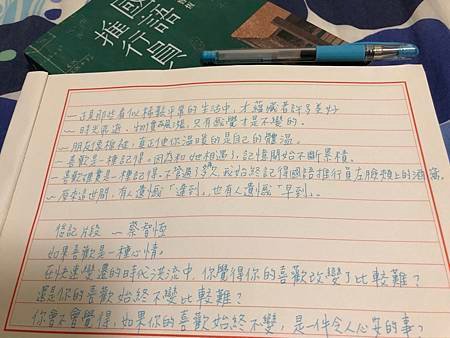 國語
推行員
~正是那些看似稀鬆平常的生活中,才蘊藏著許多美好
~時光,物換星移,只有感覺才是不變的。
~朋友像棉被,真正使你溫暖的是自己的體溫。
~喜歡是一種記得。因為和她相遇了,記憶開始不斷累積。
~喜歡其實是一種記得。不管過了多久,我始終記得國語推行員左臉頰上的酒窩。
~原來這世間,有人遺憾「遲到」,也有人遺憾「早到」。
後記片段~蔡智恆
如果喜歡是一種心情。
在快速變遷的時代洪流中,你覺得你的喜歡改變了比較難?
還是你的喜歡始終不變比較難?
你會不會覺得,如果你的喜歡始終不變,是一件令人心安的事?